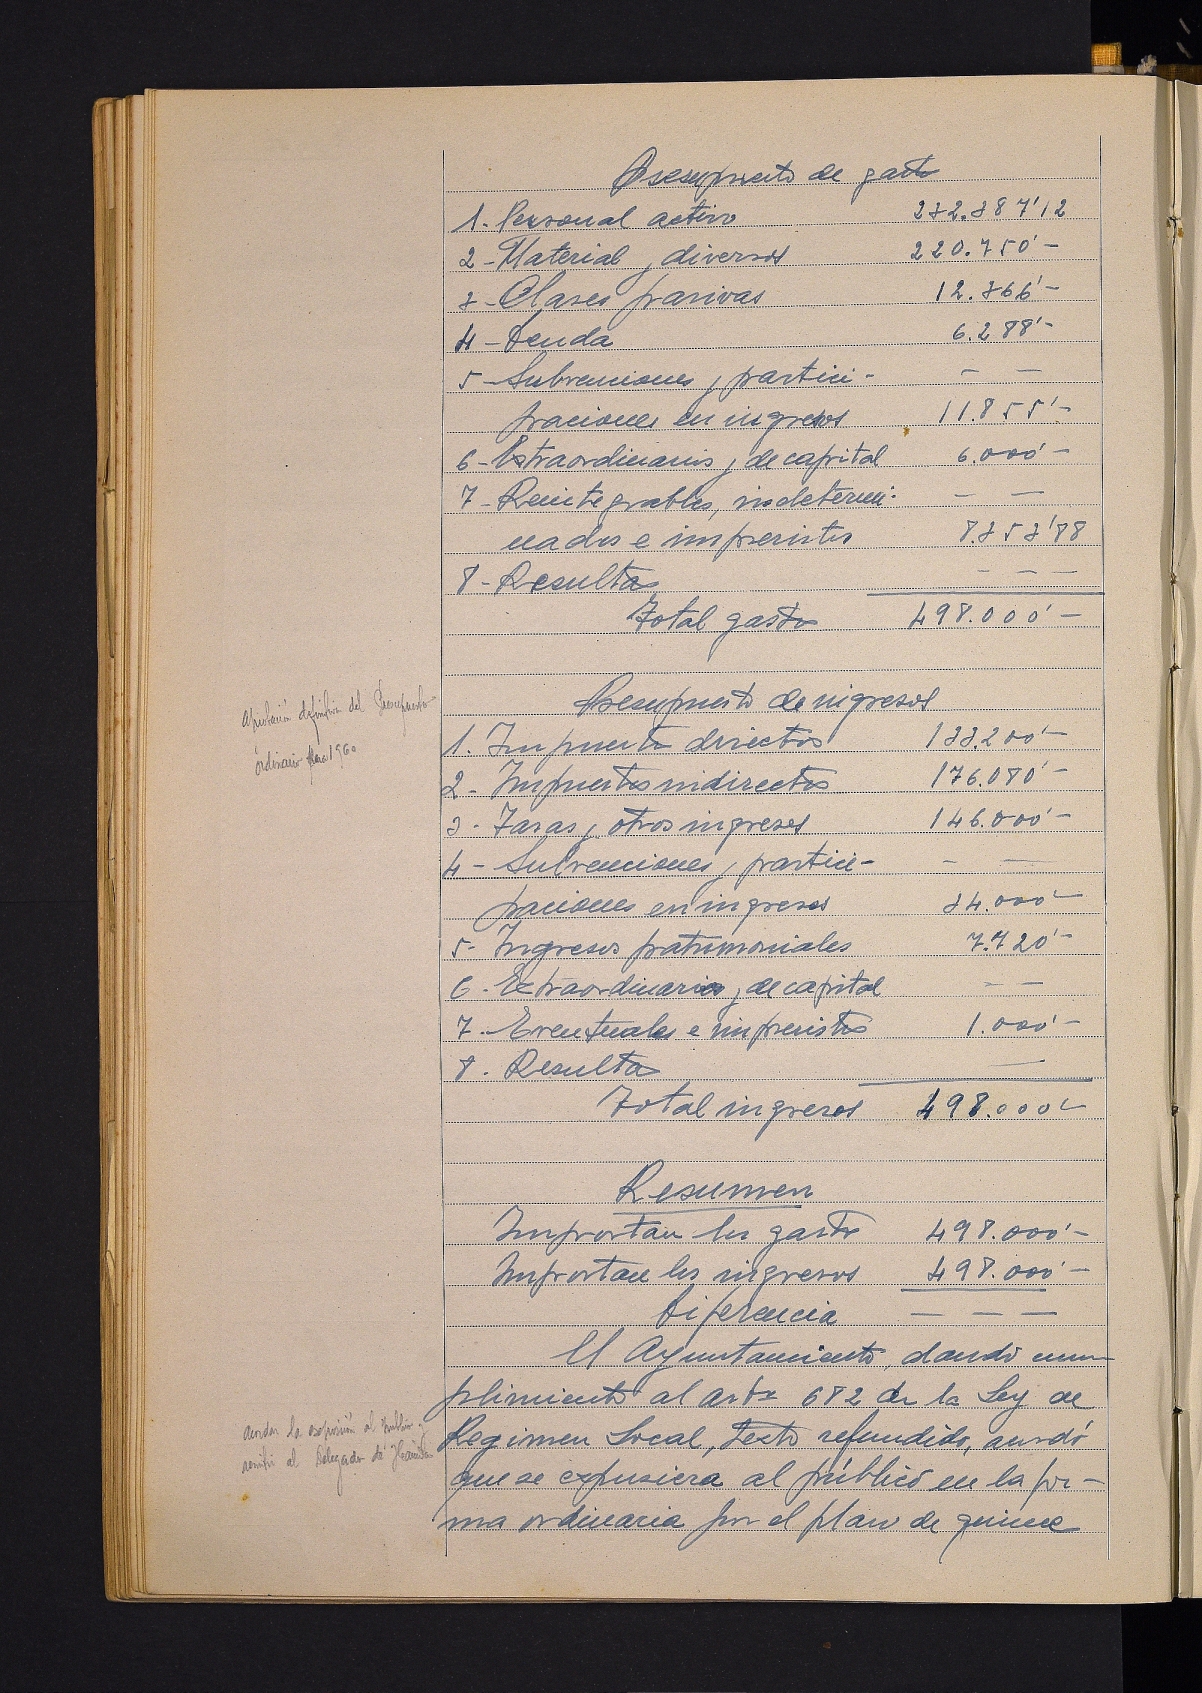 Presupuesto de gastos
1. Personal activo 232.387'12
2 - Material y diversos 220.750'-
3 - Clases pasivas 12.366'-
4 - Deuda 6.288'-
5 - Subvenciones y partici- - -
paciones en ingresos 11.855'-
6 - Extraordinarios y de capital 6.000'-
7 - Reintegrables, indetermi- - -
nados e imprevistos 8.353'88
8 - Resultas - - -
Total gastos 498.000'-
Presupuesto de ingresos
Aprobación definitiva del Presupuesto
ordinario para 1960
1. Impuestos directos 133.200'-
2 - Impuestos indirectos 176.080'-
3 - Tasas y otros ingresos 146.000'-
4 - Subvenciones y partici- - -
paciones en ingresos 34.000'-
5 - Ingresos patrimoniales 7.720'-
6 - Extraordinarios y de capital - -
7 - Eventuales e imprevistos 1.000'-
8 - Resultas -
Total ingresos 498.000'-
Resumen
Importan los gastos 498.000'-
Importan los ingresos 498.000'-
Diferencia - - -
El Ayuntamiento, dando cum-
plimiento al artº 682 de la Ley de
acordar la exposición al público y
remitir al Delegado de Hacienda
Regimen Local, texto refundido, acordó
que se expusiera al público en la for-
ma ordinaria por el plazo de quince